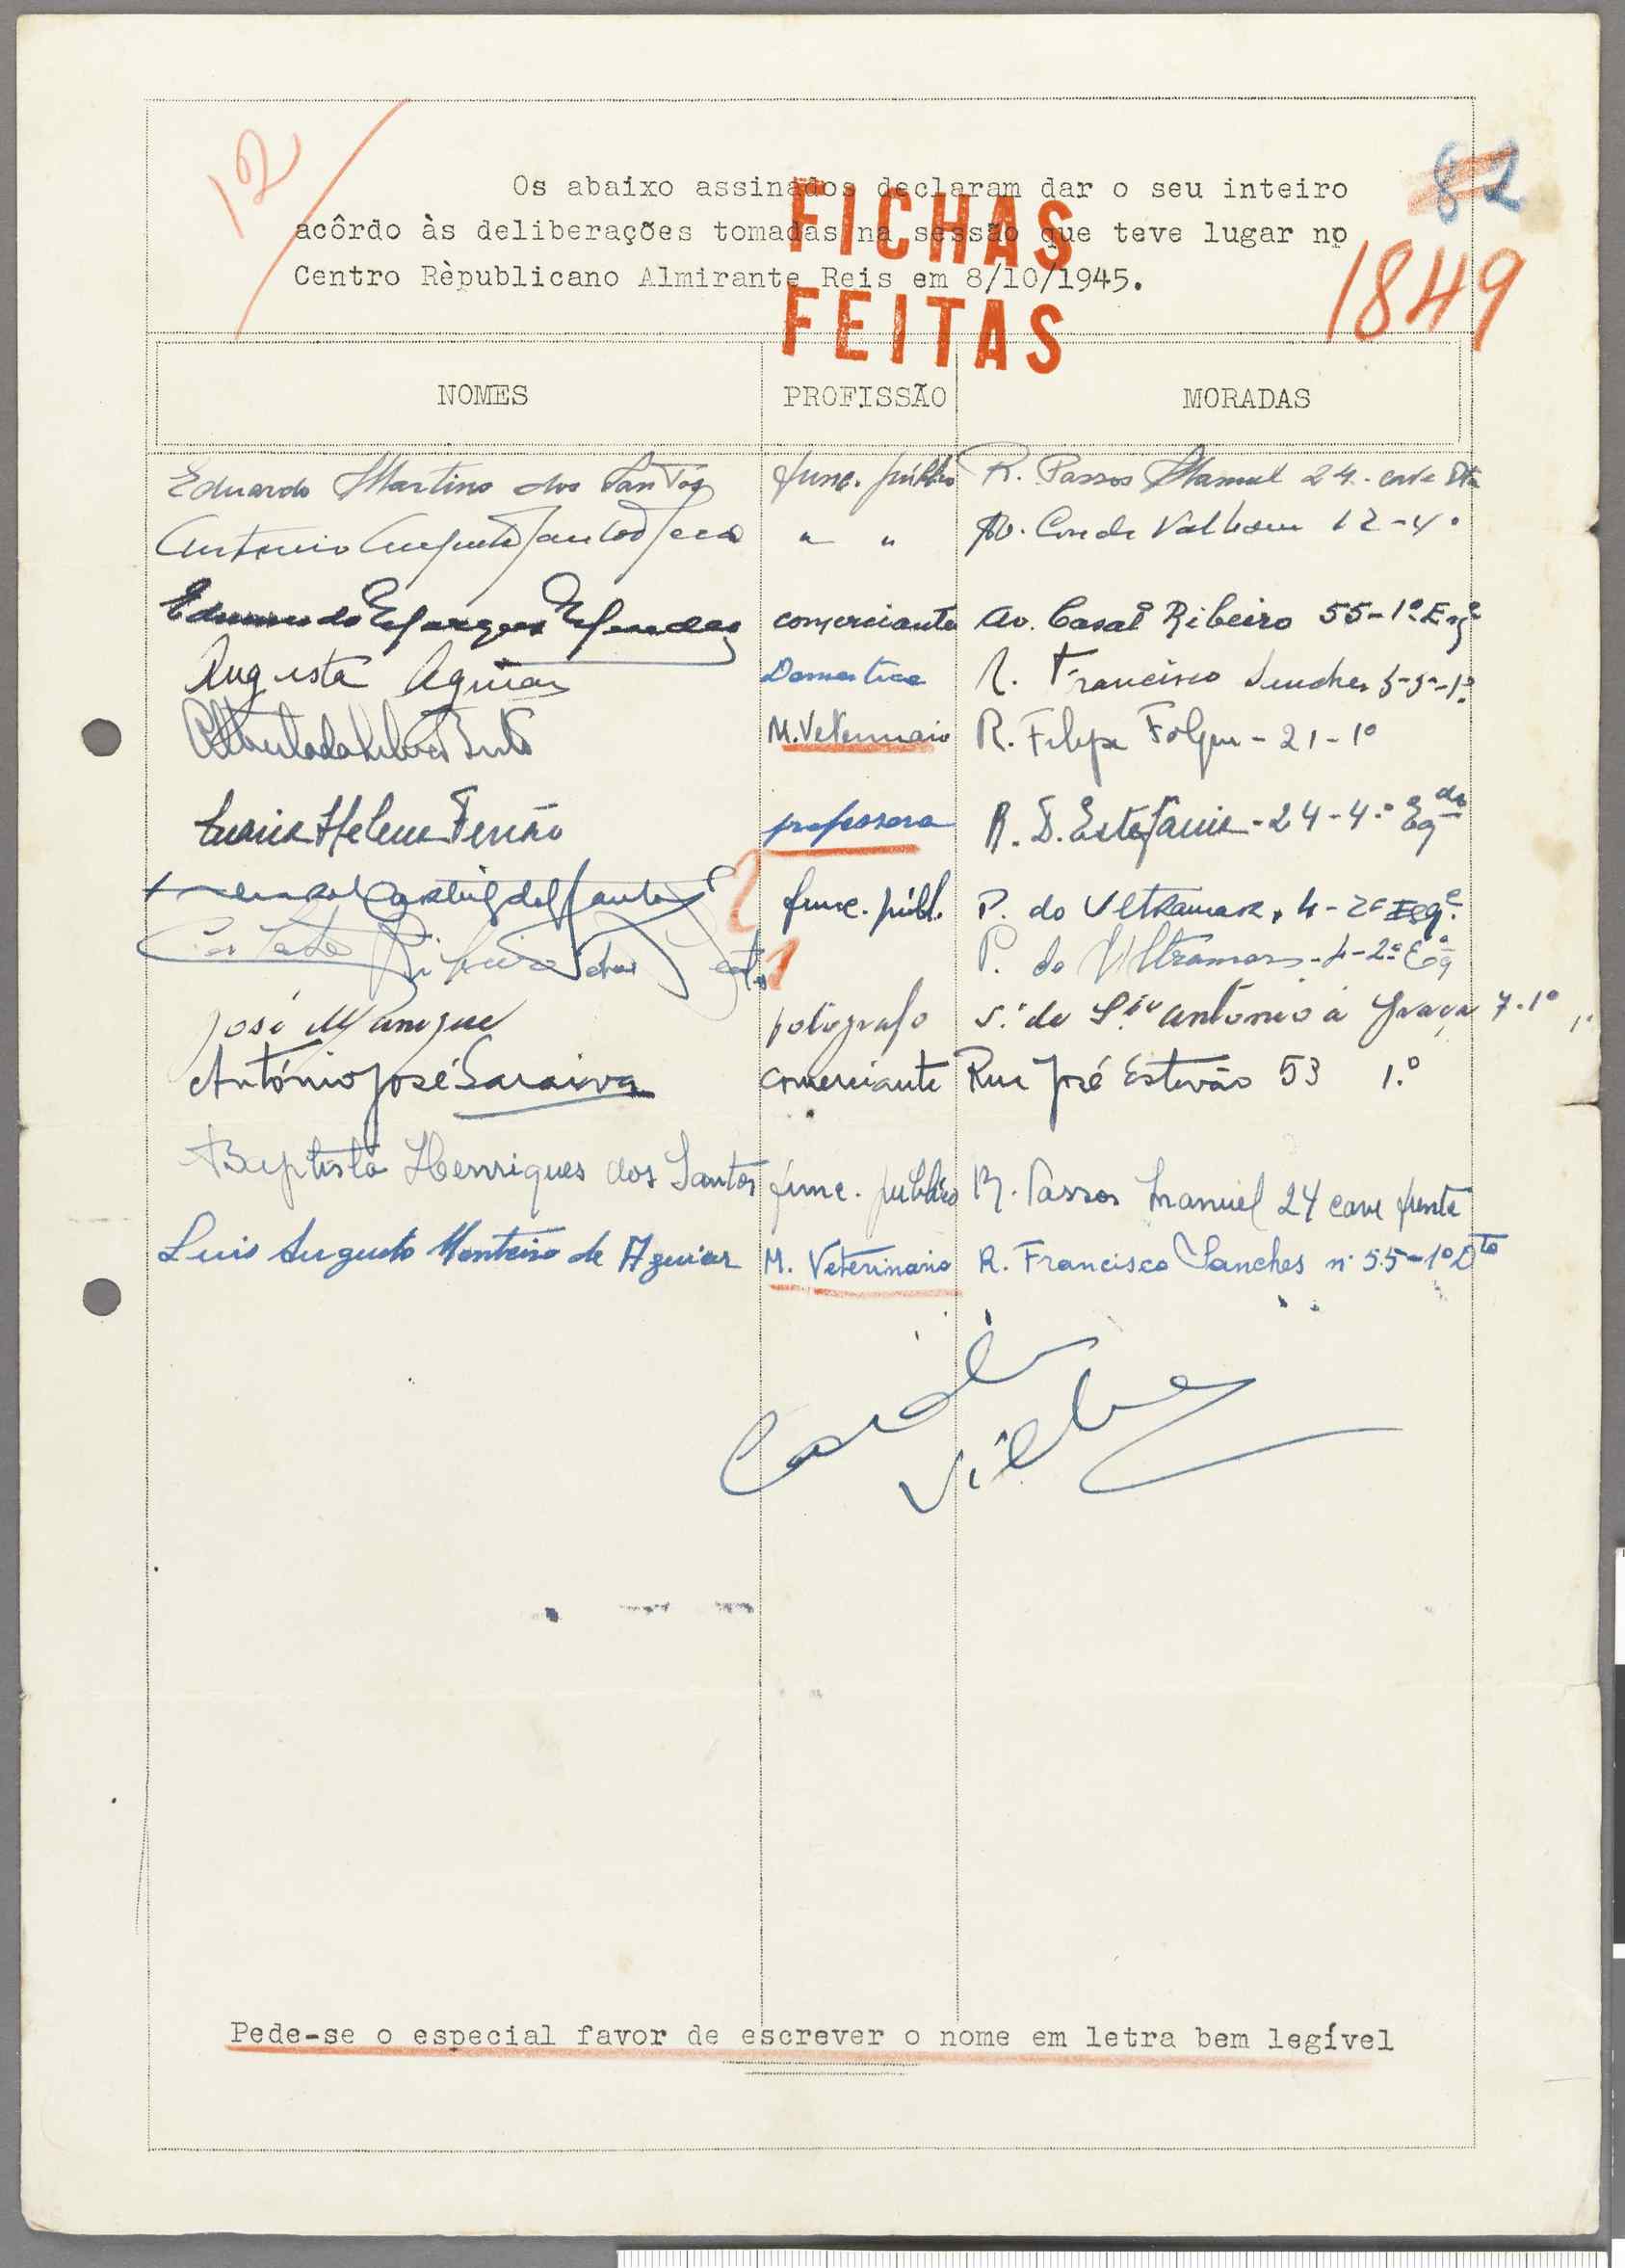 12
82
1849
Os abaixo assinados declaram dar o seu inteiro
acôrdo às deliberações tomadas na sessão que teve lugar no
Centro Rèpublicano Almirante Reis em 8/10/1945.
FICHAS
FEITAS
NOMES PROFISSÃO MORADAS
Eduardo Martins dos Santos func. público R. Passos Manuel 24 - cave Dta
Antonio Augusto Santos " " Av. Conde Valbom 12-4º
Eduardo Marques Mendes comerciante Av. Casal Ribeiro 55-1º Esqº
Augusta Aguiar Domestica R. Francisco Sanches 55-1º
M. Veterinario R. Filipe Folque - 21-1º
Maria Helena Ferrão professora R. D. Estefania - 24-4º Eqda
dos Santos func. públ. P. do Ultramar, 4-2º Esqº
2
Ribeiro dos P. do Ultramar - 4-2º Eqº
1
José Manique fotografo de Sto António à Graça 7-1º
António José Saraiva comerciante Rua José Estevão 53 1.º
Baptista Henriques dos Santos func. publico R. Passos Manuel 24 cave frente
Luis Augusto Monteiro de Aguiar M. Veterinario R. Francisco Sanches nº 55-1º Dto
Pede-se o especial favor de escrever o nome em letra bem legível